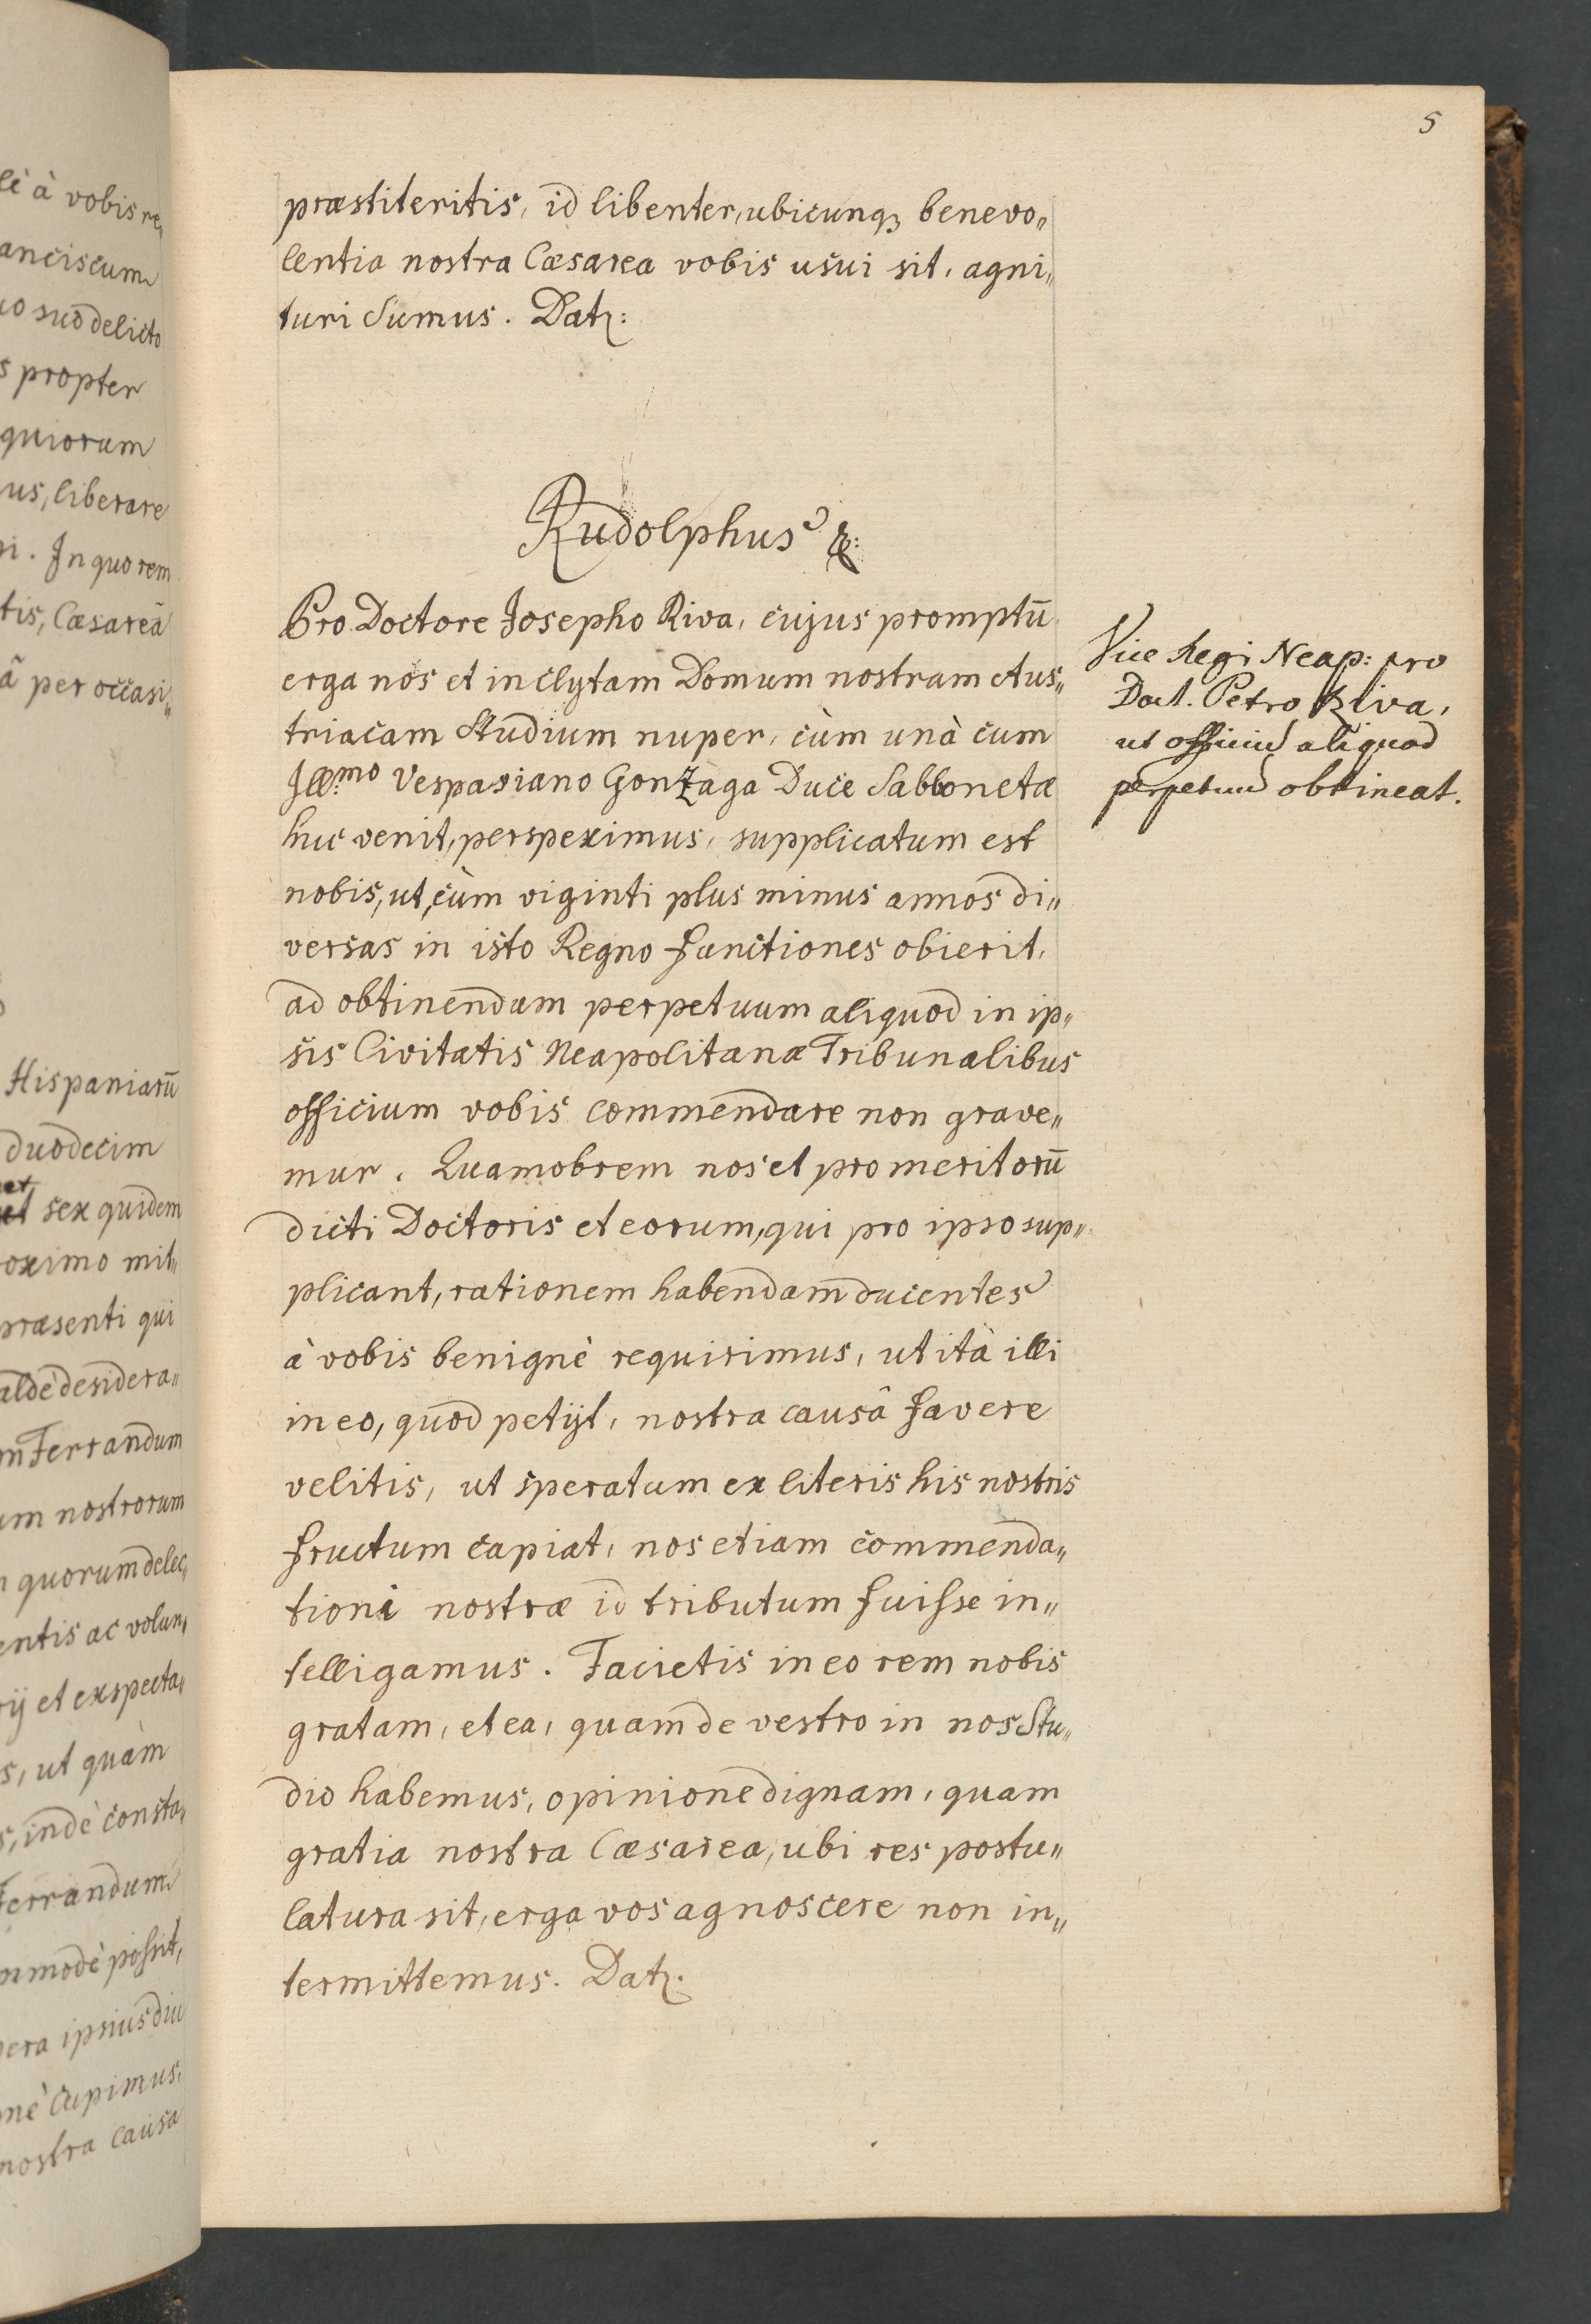 5
præstiteritis, id libenter, ubicunqꝫ benevo„
lentia nostra Cæsarea vobis usui sit, agni„
turi sumus. Datꝫ:
Rudolphus &:
Pro Doctore Josepho Riva, cujus promptū
erga nos et inclytam Domum nostram Aus„
triacam studium nuper, cùm unà cum
Ill:mo Vespasiano Gonzaga Duce Sabbonetæ
huc venit, perspeximus, supplicatum est
nobis, ut, cùm viginti plus minus annos di„
versas in isto Regno functiones obierit,
ad obtinendum perpetuum aliquod in ip„
sis Civitatis Neapolitanæ Tribunalibus
officium vobis commendare non grave„
mur. Quamobrem nos et promeritorū
dicti Doctoris et eorum, qui pro ipso sup„
plicant, rationem habendam ducentes
à vobis benignè requirimus, ut ità illi
in eo, quod petijt, nostra causâ favere
velitis, ut speratum ex literis his nostris
fructum capiat, nos etiam commenda„
tioni nostræ id tributum fuisse in„
telligamus. Facietis in eo rem nobis
gratam, et ea, quam de vestro in nos stu„
dio habemus, opinione dignam, quam
gratia nostra Cæsarea, ubi res postu„
latura sit, erga vos agnoscere non in„
termittemus. Datꝫ.
Vice Regi Neap: pro
Doct. Petro Riva,
ut officiū aliquod
perpetuū obtineat.
lì à vobis re„
anciscum
uo suo delicto
s propter
quiorum
us, liberare
i. In quo rem
tis, Cæsareâ
â per occasi„
Hispaniarū
duodecim
sex quidem
oximo mit„
præsenti qui
aldè desidera„
m Ferrandum
um nostrorum
n quorum delec„
entis ac volun„
rij et exspecta„
s, ut quàm
s, indè consta„
Ferrandum
mmodè possit,
pera ipsius diu
nè cupimus,
nostra causa